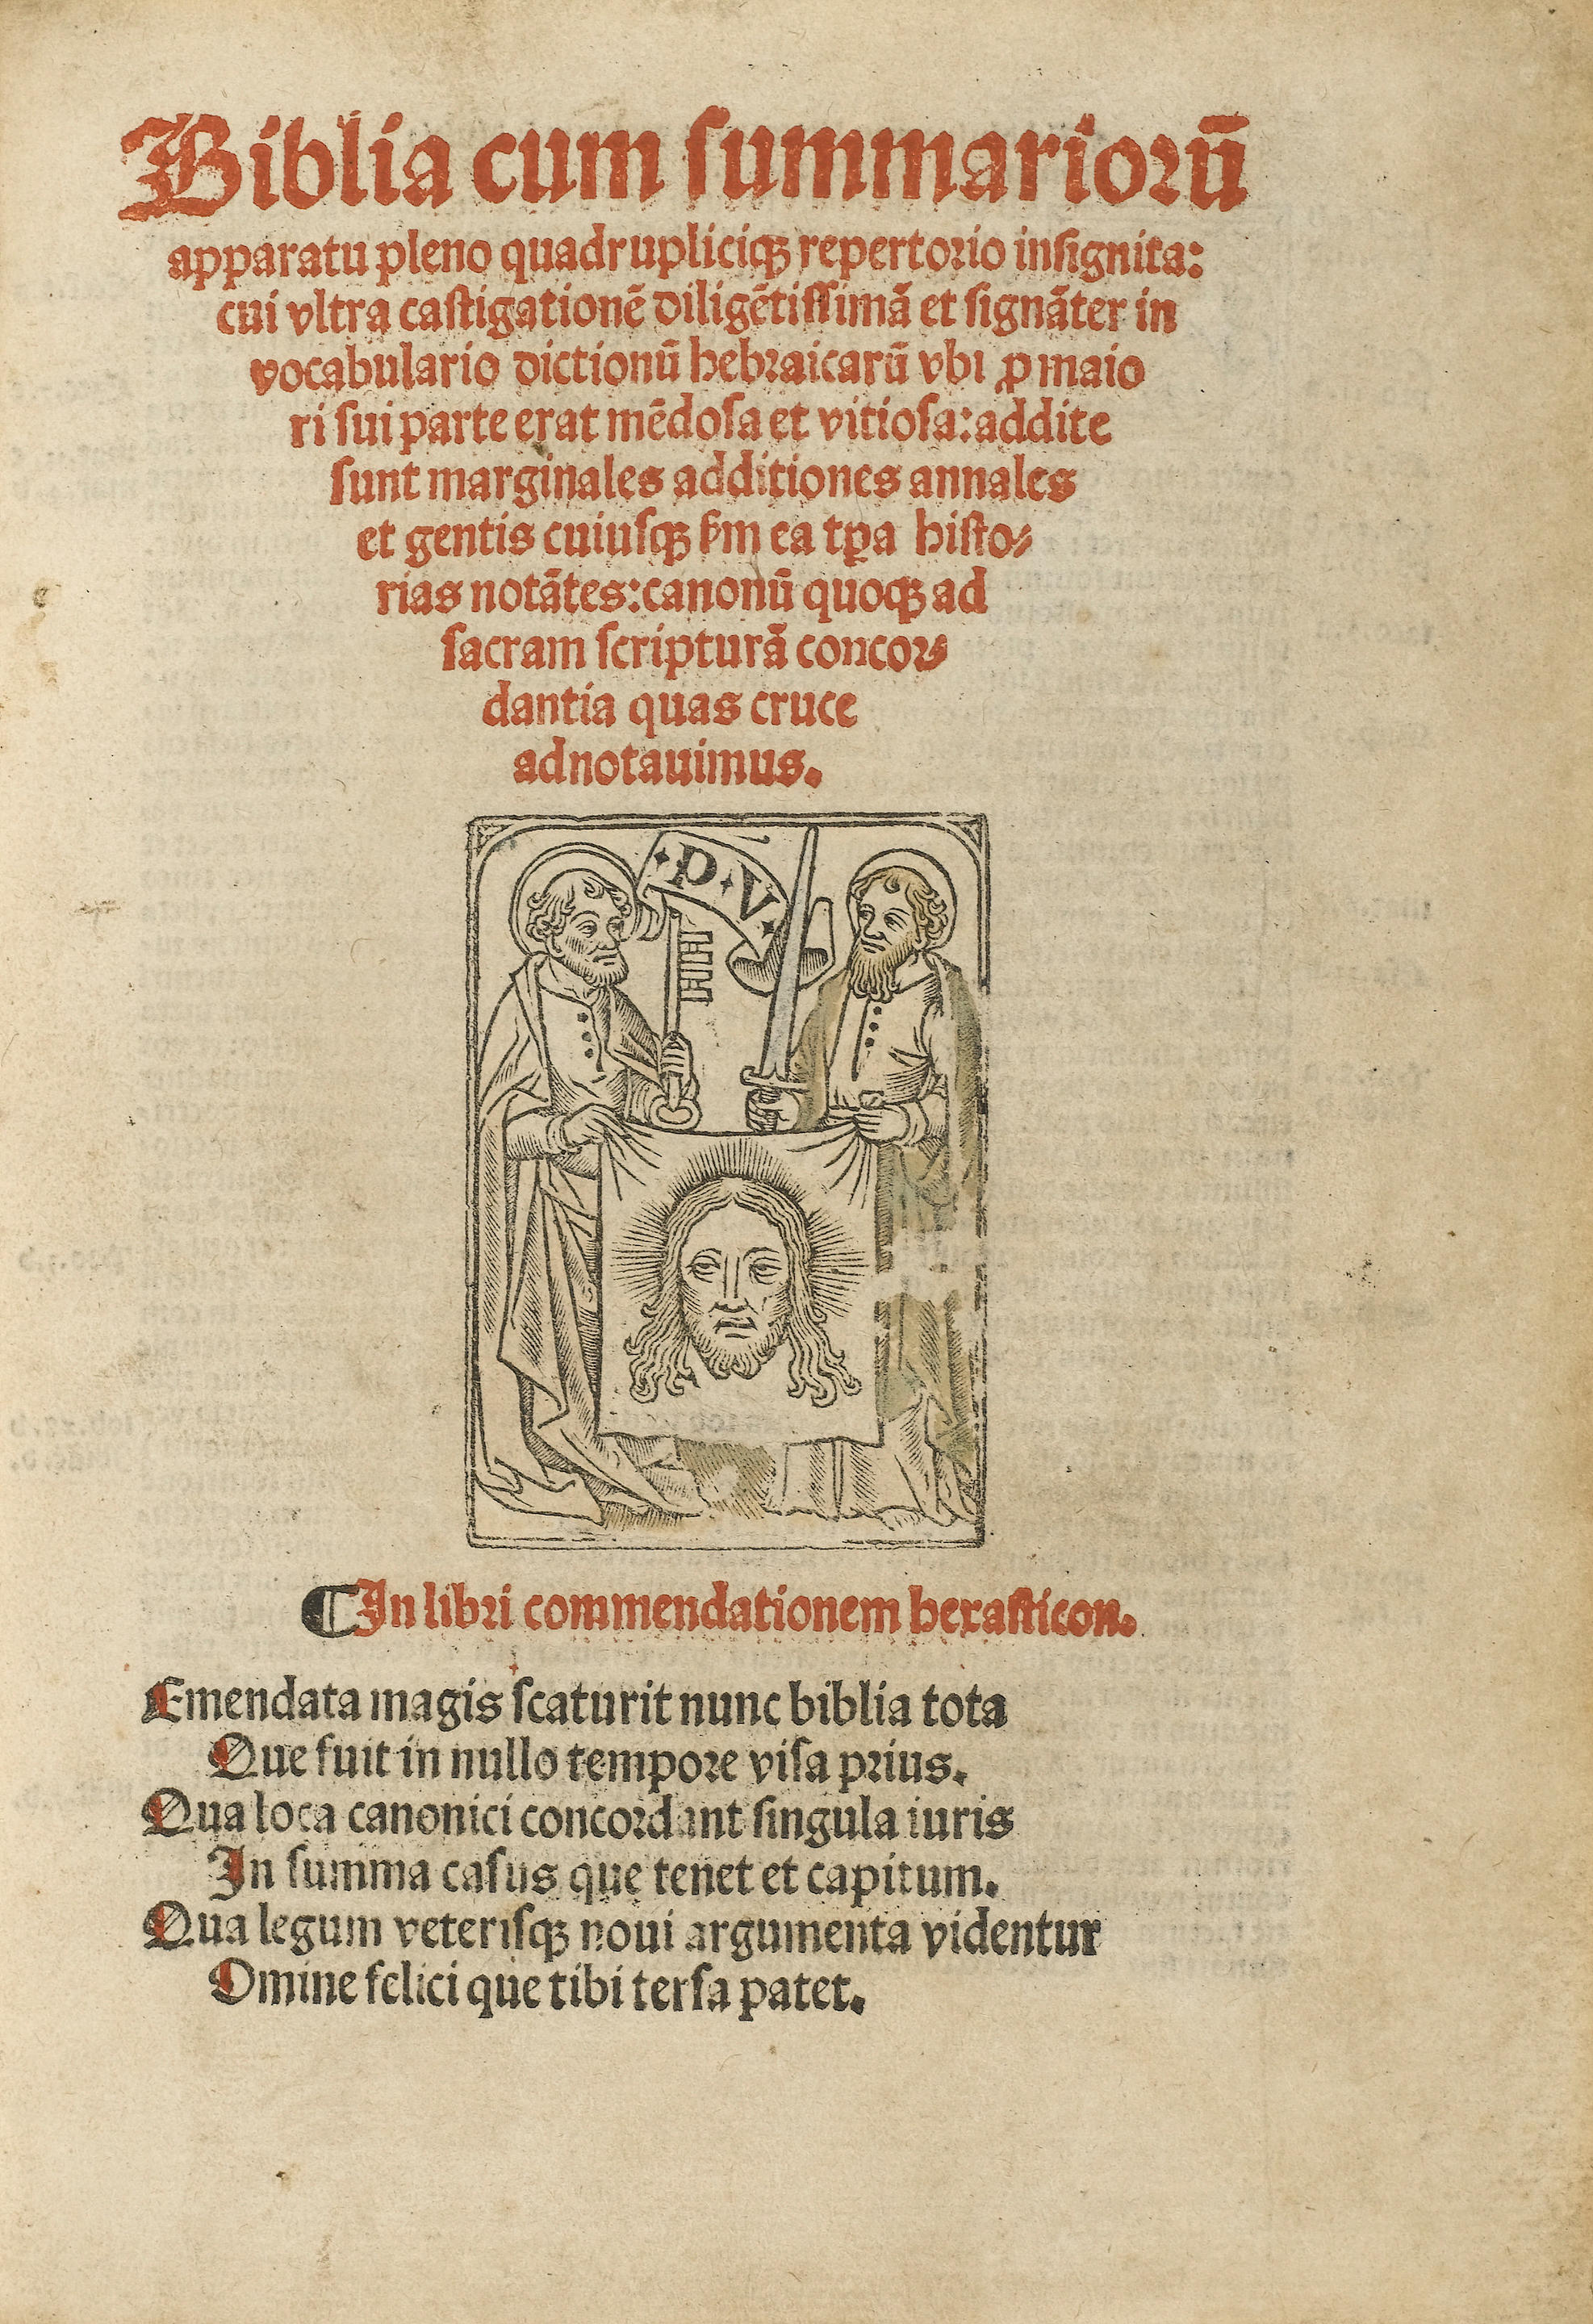 Biblia cum summariorū
apparatu pleno quadrupliciqꝫ repertorio insignita:
cui vltra castigationē diligētissimā et signāter in
vocabulario dictionū hebraicarū vbi ꝓ maio
ri sui parte erat mēdosa et vitiosa: addite
sunt marginales additiones annales
et gentis cuiusqꝫ ẜm ea tꝑa histo⸗
rias notātes: canonū quoqꝫ ad
sacram scripturā concor⸗
dantia quas cruce
adnotauimus.
P V
¶ In libri commendationem hexasticon.
Emendata magis scaturit nunc biblia tota
Que fuit in nullo tempore visa prius.
Qua loca canonici concordant singula iuris
In summa casus que tenet et capitum.
Qua legum veterisqꝫ noui argumenta videntur
Omine felici que tibi tersa patet.